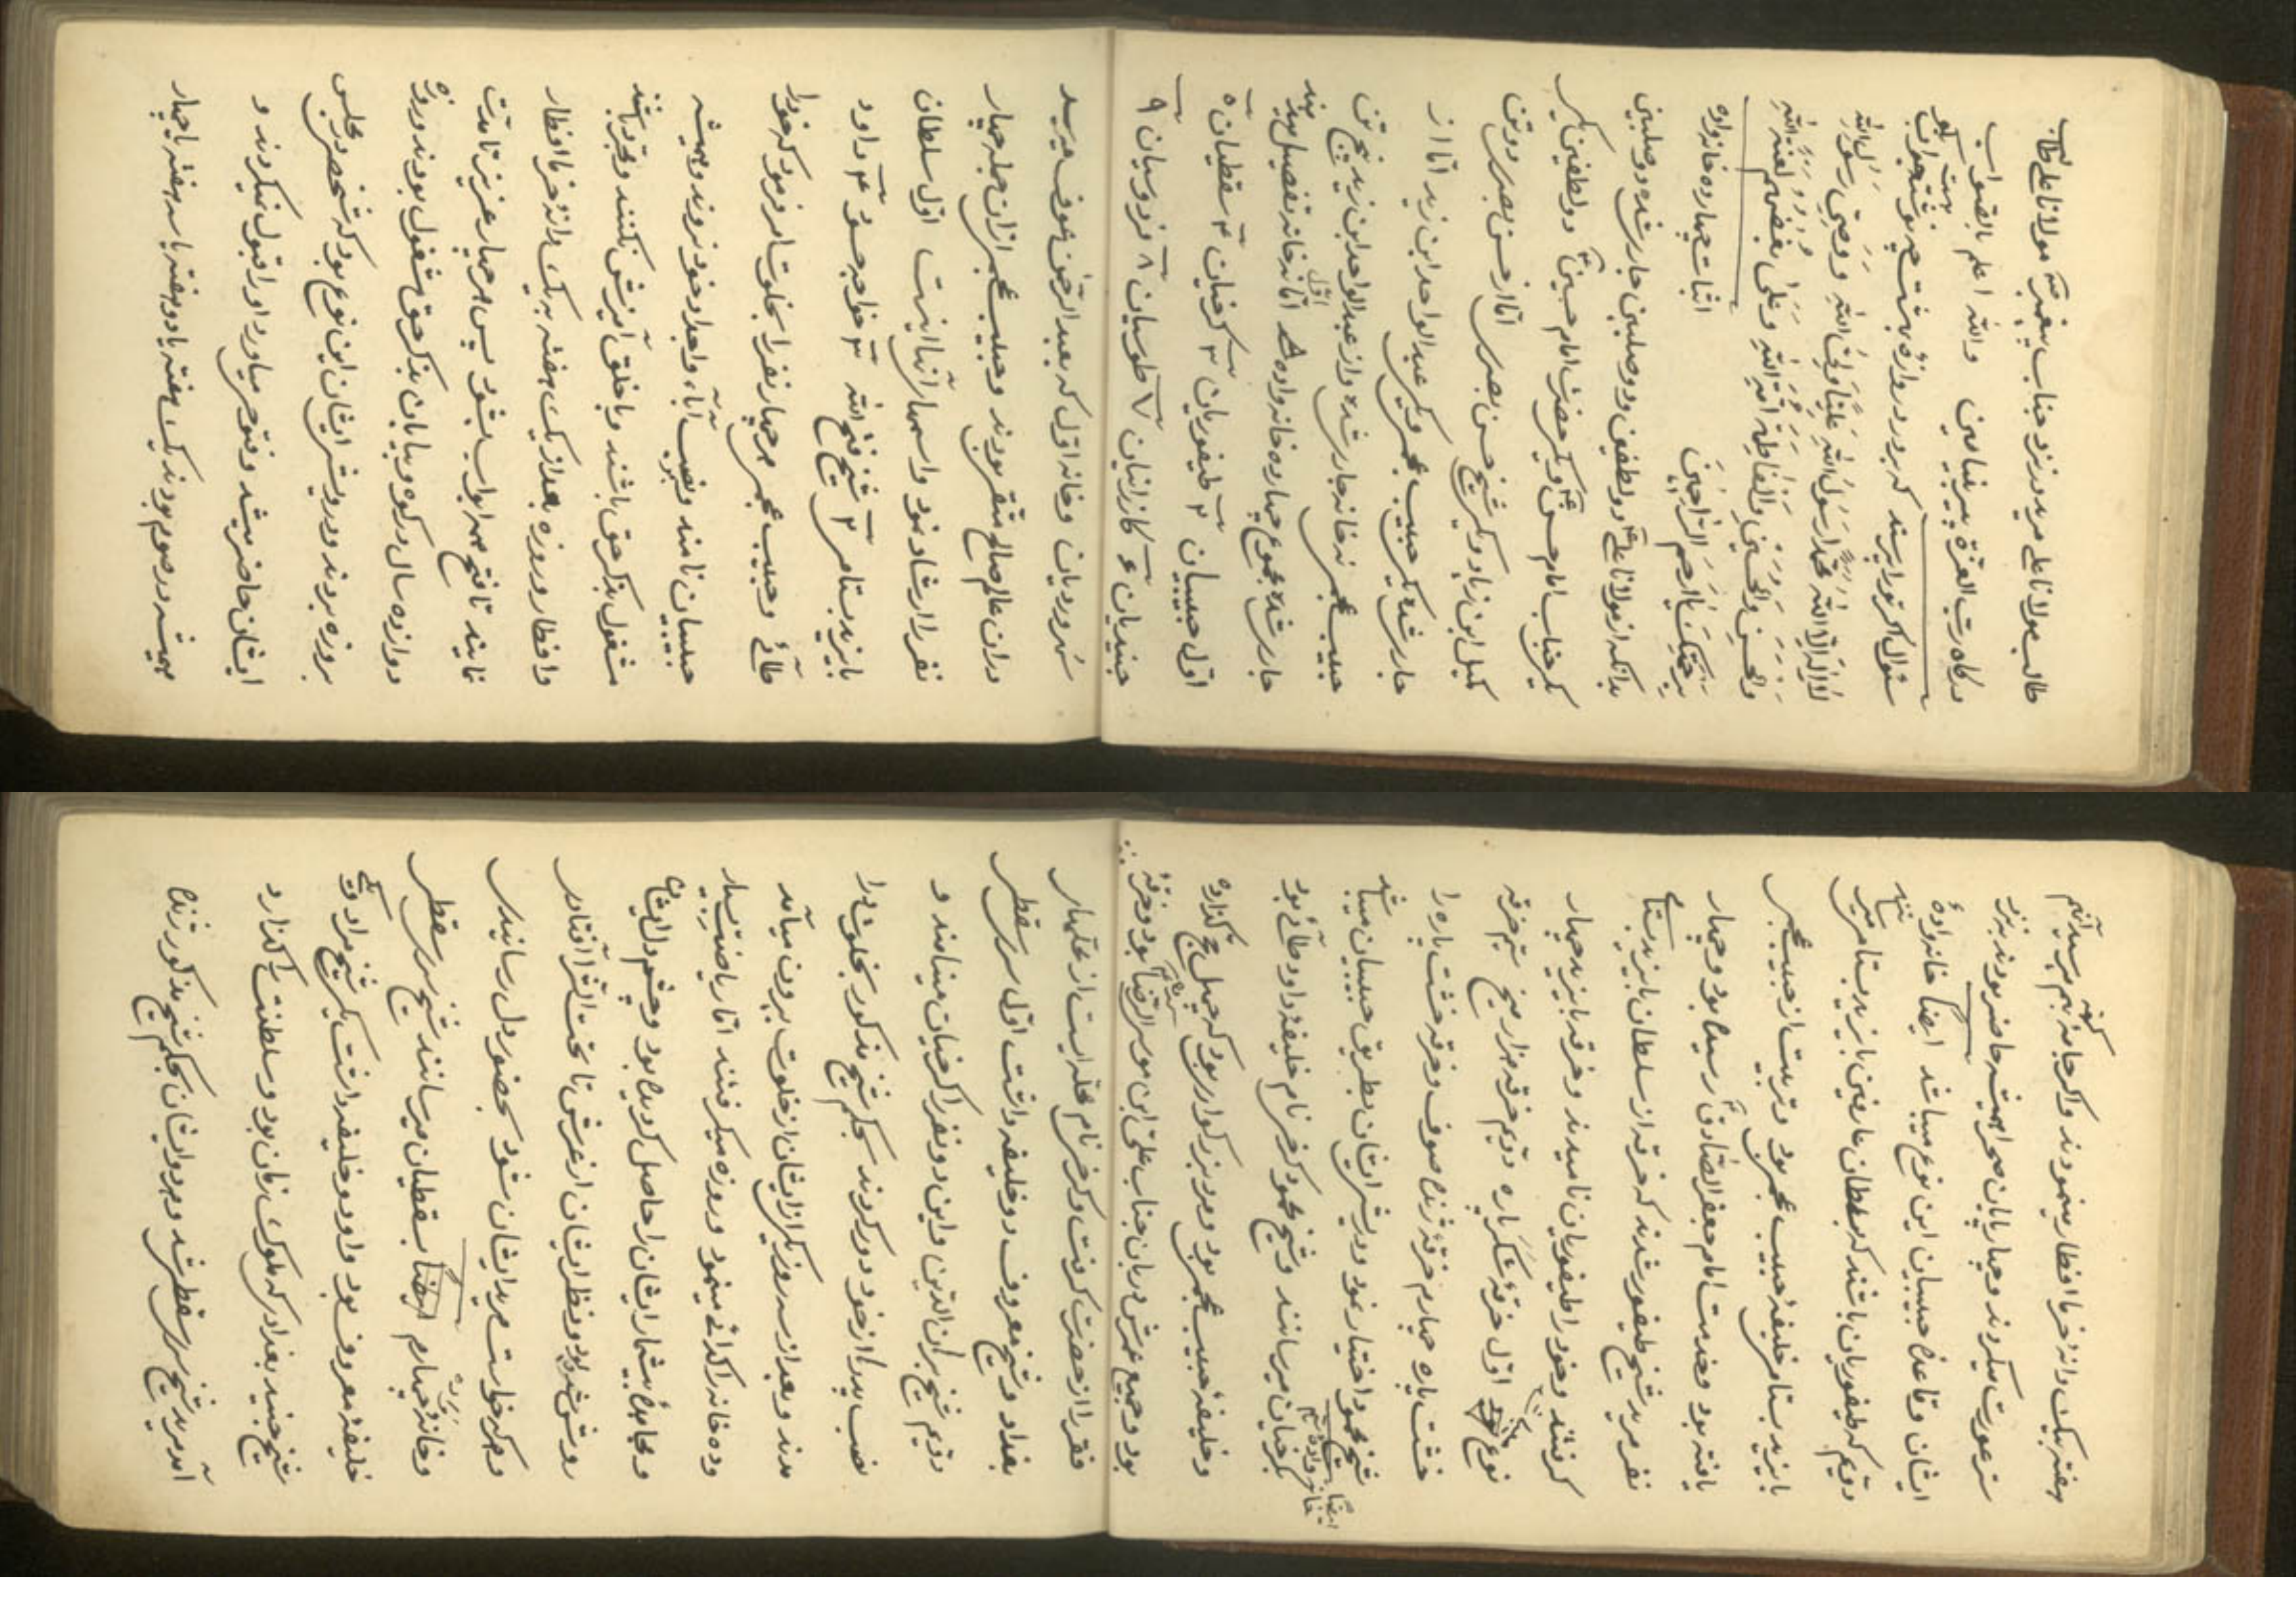 طالب مولانا علی مرید در نزد جناب پیغمبر که مولانا علی طالب
درگاه رب العزة پیر بنیامین والله اعلم بالصواب
سئوال اگر تو را پرسند که بر در دروازه بهشت چه نوشته جواب بگو
لا اله الا الله محمد رسول الله علیا ولی الله و وصی رسول الله
والحسن والحسین والفاطمه امة الله وعلی بغضهم لعنة الله
برحمتک یا ارحم الراحمین اثبات چهارده خانواده
بدانکه از مولانا علی دو لطفین و دو صلبین جار شده دو صلبین
یکی جناب امام حسن و یکی حضرت امام حسین و دو لطفین یکی
کمیل ابن زیاد و یکی شیخ حسن بصری اما از حسن بصری دو تن
جار شد یکی حبیب عجمی و یکی عبدالواحد ابن زید اما از
حبیب عجمی نه خانه جار شده و از عبدالواحد ابن زید پنج تن
جار شده مجموع چهارده خانواده اما نه خانه تفصیل میدهند
اول حبیبیان ۲ طیفوریان ۳ کرخیان ۴ سقطیان ۵
جنیدیان ۶ کازرانیان ۷ طوسیان ۸ فردوسیان ۹
سهروردیان و خانه اول که بعبدالرحمن عوف میرسد
در آن عالم صالح متقی بودند و حبیب عجمی از آن جمله چهار
نفر را ارشاد نمود و اسمهای آنها اینست اول سلطان
بایزید بستامی ۲ شیخ فتح الله ۳ خواجه حسن ۴ داود
طائی و حبیب عجمی هر چهار نفر را بخلوت امر فرمود که خود را
حبیبیان نامند و بنصب آباء و اجداد خود نروند و همیشه
مشغول بذکر حق باشند و با خلق آمیزش نکنند و مجرد باشند
و افطار و روزه بعد از یک هفته به یک دانه خرما افطار
نمایند تا فتح همه ابواب بشود پس هر چهار عزیز تا مدت
دوازده سال در کوه و بیابان بذکر حق مشغول بودند و روزه
بروزه بردند و درویشی ایشان این نوع بود که شخصی در مجلس
ایشان حاضر میشد و فتوحی میاورد او را قبول نمیکردند و
همیشه در صوم بودند یک هفته یا دو هفته یا سه هفته یا چهار
هفته بیک دانه خرما افطار مینمودند و اگر جامه کهنه بهم میرسید آنهم
ستر عورت میکردند و چهار پایان صحرا همیشه حاضر بودند بنزد
ایشان و قاعده حبیبیان این نوع میباشد ایضا خانواده
دویم که طیفوریان باشند که سلطان عارفین بایزید بستامی میرسانند
بایزید بستامی خلیفه حبیب عجمی بود و تربیت از حبیب عجمی
یافته بود و خدمت امام جعفر الصادق رسیده بود و چهار
نفر مرید شیخ طیفوری شدند که خرقه از سلطان بایزید بستامی
گرفتند و خود را طیفوریان نامیدند و خرقه بایزید چهار
نوع اول خرقه شکر پاره دویم خرقه هزار میخ سیم خرقه
خشت پاره چهارم خرقه ژنده صوف و خرقه خشت پاره را
شیخ محمود اختیار نمود و درویشی ایشان بطریق حبیبیان میباشد
ایضا خانواده سیم
کرخیان میرسانند و شیخ محمود کرخی نام خلیفه داود طائی بود
و خلیفه حبیب عجمی بود و مرد بزرگواری بود که چهل حج گذارده
بود و جمیع عمرش دربان جناب علی ابن موسی الرضا بود و خرقه
فقر را از حضرت گرفت و کرخ نام محله ایست از محلهای
بغداد و شیخ معروف دو خلیفه داشت اول سری سقطی
دویم شیخ بران الدین و این دو نفر را کرخیان مینامند و
نصب پدر را از خود دور کردند بحکم شیخ مذکور بخلوت در آ
مدند و بعد از سه روز یکی از ایشان از خلوت بیرون میآمد
و ده خانه را گدائی مینمود و روزه میگرفتند اما ریاضت بسیار
و مجاهده بیشمار ایشان را حاصل گردیده بود و چشم دل ایشان
روشن شده بود و نظر ایشان از عرش تا تحت الثرا افتادی
و هر که خواست مرید ایشان شود بحضور دل رسانیدی
و خانواده چهارم ایضا بسقطیان میرسانند شیخ سری سقطی
خلیفه معروف بود و او دو خلیفه داشت یکی شیخ مراد و یکی
شیخ جنید بغدادی که ملوک زمان بود و سلطنت را گذارد
آمد مرید شیخ سری سقطی شد و هر دو ایشان بحکم شیخ مذکور ژنده